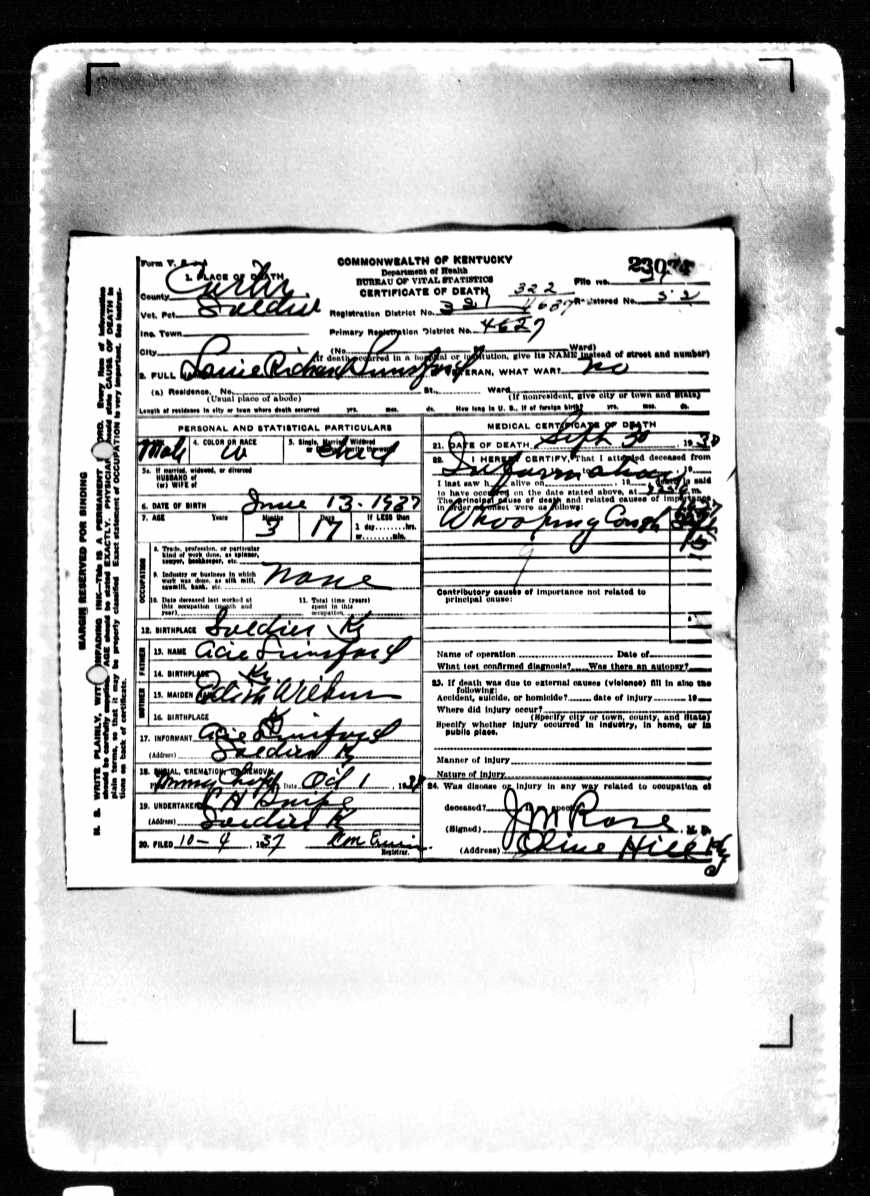 COMMONWEALTH OF KENTUCKY
Department of Health
BUREAU OF VITAL STATISTICS
CERTIFICATE OF DEATH
Form V.
1. PLACE OF DEATH
County Carter
Vot. Pct. Soldier
Inc. Town
City
File No.
Registered No. 52
322
Registration District No. 4637
Primary Registration District No. 4627
(No. Ward)
(If death occurred in a hospital or institution, give its NAME instead of street and number)
2. FULL Richard Lunsford VETERAN, WHAT WAR? no
(a) Residence, No. St., Ward
(Usual place of abode) (If nonresident, give city or town and State)
Length of residence in city or town where death occurred yrs. mos. ds. How long in U. S., if of foreign birth? yrs. mos. ds.
PERSONAL AND STATISTICAL PARTICULARS
Male 4. COLOR OR RACE W 5. Single, Married, Widowed
5a. If married, widowed, or divorced
HUSBAND of
(or) WIFE of
6. DATE OF BIRTH June 13-1937
7. AGE Years Months 3 Days 17 If LESS than
1 day hrs.
or min.
OCCUPATION
8. Trade, profession, or particular
kind of work done, as spinner,
sawyer, bookkeeper, etc.
9. Industry or business in which
work was done, as silk mill,
sawmill, bank, etc. none
10. Date deceased last worked at
this occupation (month and
year)
11. Total time (years)
spent in this
occupation
12. BIRTHPLACE Soldier Ky
FATHER
13. NAME Acie Lunsford
14. BIRTHPLACE Ky
MOTHER
15. MAIDEN Edith Wilburn
16. BIRTHPLACE Ky
17. INFORMANT Acie Lunsford
(Address) Soldier Ky
18. BURIAL, CREMATION, OR REMOVAL
Date Oct 1, 19
19. UNDERTAKER
(Address) Soldier K
20. FILED 10-4, 1937
Registrar.
MEDICAL CERTIFICATE OF DEATH
21. DATE OF DEATH Sept 30 19
22. I HEREBY CERTIFY, That I attended deceased from
Information
I last saw h alive on 19 death is said
to have occurred on the date stated above, at m.
The principal cause of death and related causes of importance
in order of onset were as follows:
Whooping Cough
Contributory causes of importance not related to
principal cause:
Name of operation Date of
What test confirmed diagnosis? Was there an autopsy?
23. If death was due to external causes (violence) fill in also the
following:
Accident, suicide, or homicide? date of injury 19
Where did injury occur?
(Specify city or town, county, and State)
Specify whether injury occurred in industry, in home, or in
public place.
Manner of injury
Nature of injury
24. Was disease or injury in any way related to occupation of
deceased?
(Signed) J M Rose M. D.
(Address) Olive Hill Ky
MARGIN RESERVED FOR BINDING